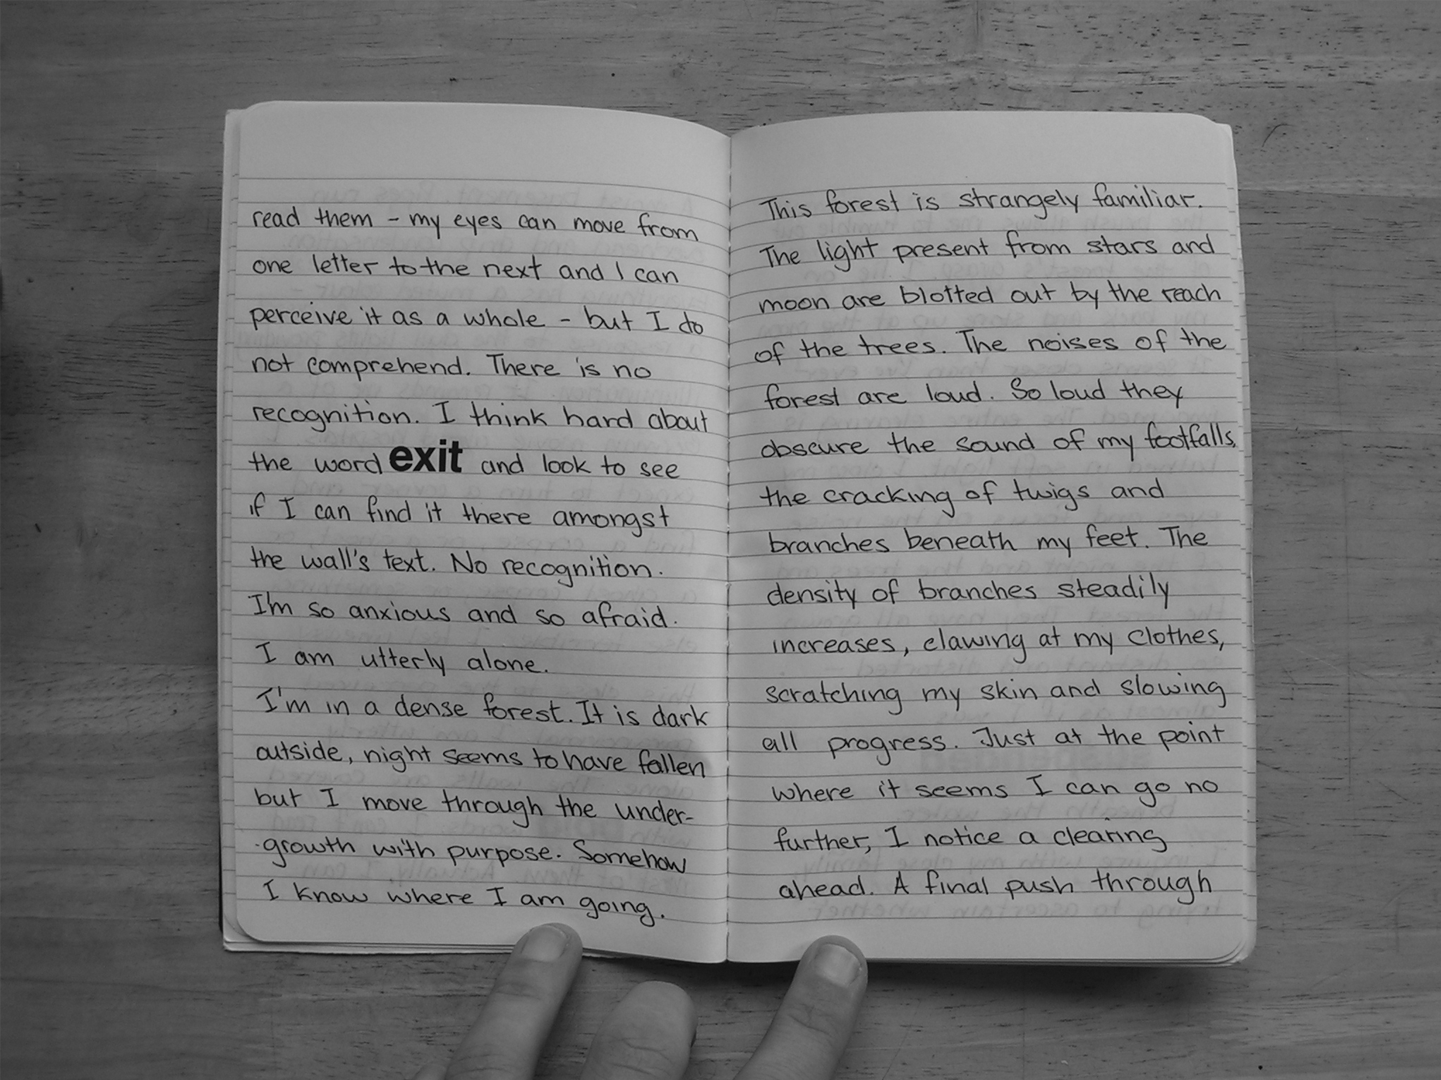 read them - my eyes can move from
one letter to the next and I can
perceive it as a whole - but I do
not comprehend. There is no
recognition. I think hard about
the word exit and look to see
if I can find it there amongst
the wall's text. No recognition.
I'm so anxious and so afraid.
I am utterly alone.
I'm in a dense forest. It is dark
outside, night seems to have fallen
but I move through the under-
-growth with purpose. Somehow
I know where I am going.
This forest is strangely familiar.
The light present from stars and
moon are blotted out by the reach
of the trees. The noises of the
forest are loud. So loud they
obscure the sound of my footfalls,
the cracking of twigs and
branches beneath my feet. The
density of branches steadily
increases, clawing at my clothes,
scratching my skin and slowing
all progress. Just at the point
where it seems I can go no
further, I notice a clearing
ahead. A final push through